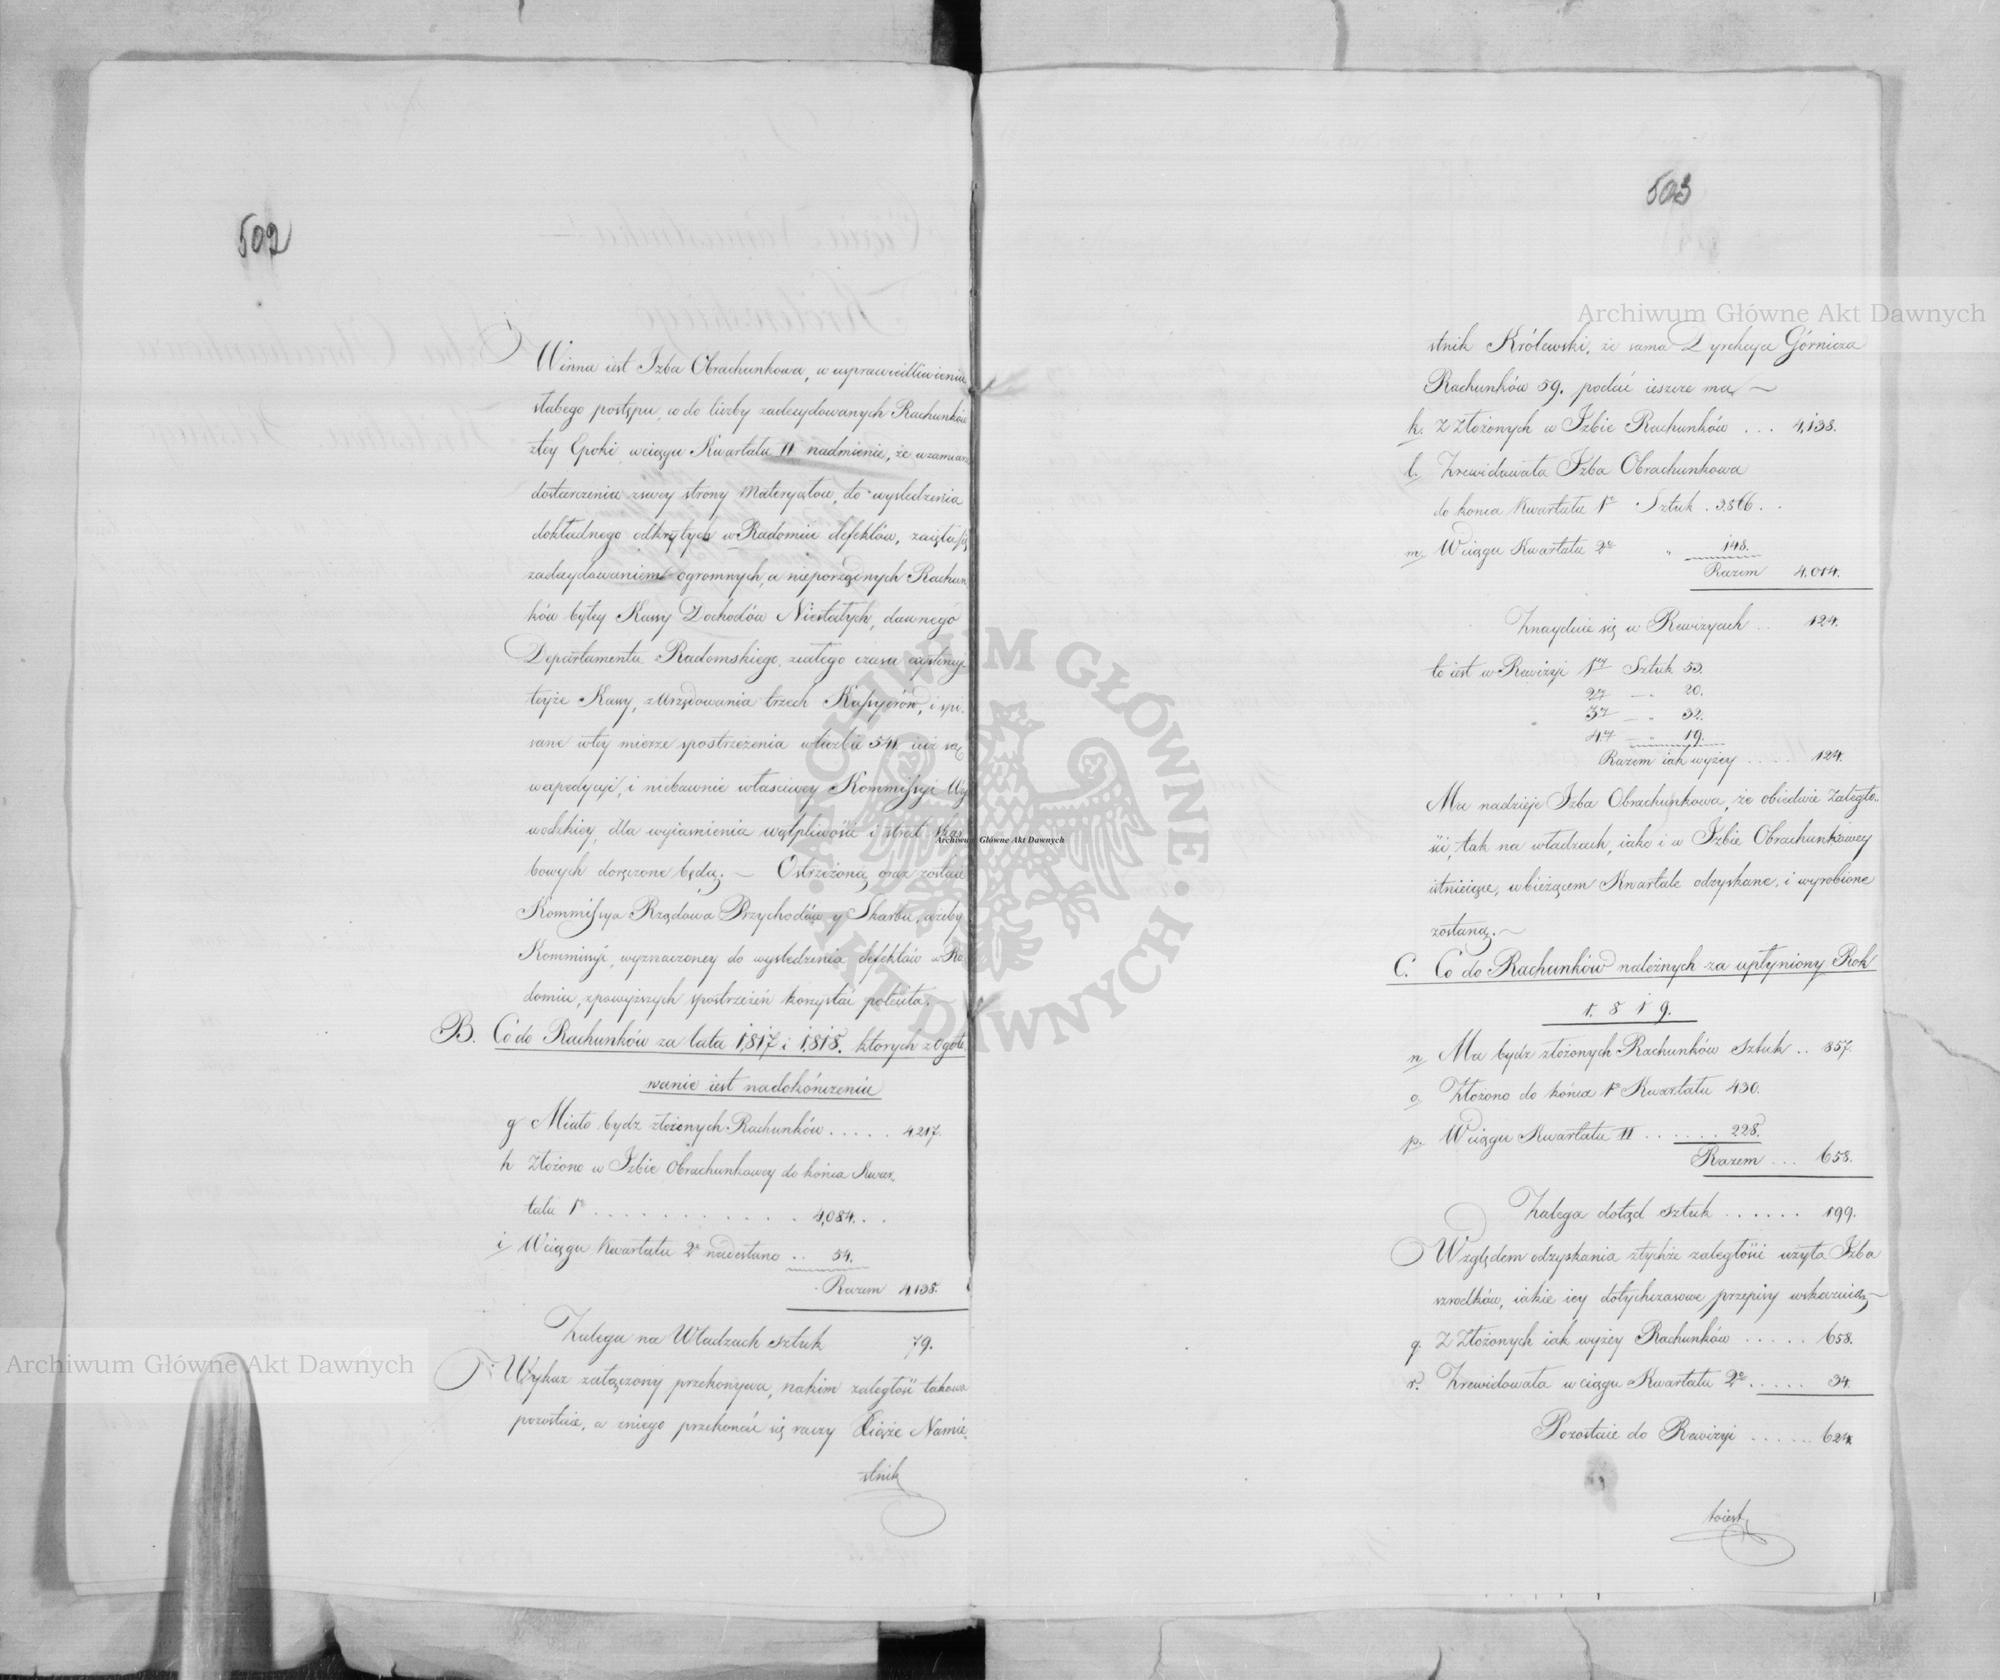 502
Winna iest Izba Obrachunkowa, w usprawiedliwieniu
słabego postępu, co do liczby zadecydowanych Rachunków
z tey Epoki, w ciągu Kwartału II nadmienić, że w zamiarze
dostarczenia z swey strony Materyałów, do wyśledzenia
dokładnego odkrytych w Radomiu defektów, zaięta się
zadecydowaniem ogromnych, a nieporządnych Rachun
ków byłey Kassy Dochodów Niestałych, dawnego
Departamentu Radomskiego, z całego czasu
teyże Kassy, z Urzędowania trzech Kassyerów, i spi,
sane w tey mierze spostrzeżenia w liczbie 541 iuż są
w expedycyi, i niebawnie właściwey Kommissyi Wo
wodzkiey, dla wyiaśnienia wątpliwości i strat Skar
bowych doręczone będą. — Ostrzeżoną oraz zostaie
Kommissya Rządowa Przychodów y Skarbu, ażeby
Kommissyi, wyznaczoney do wyśledzenia defektów w Ra
domiu, z powyższych spostrzeżeń korzystać poleciła.
B. Co do Rachunków za lata 1817 i 1818. których zlogoto
wanie iest na dokończeniu
g Miało bydź złożonych Rachunków ..... 4217.
h Złożono w Izbie Obrachunkowey do końca Kwar,
tału 1o ............ 4,084...
i W ciągu Kwartału 2o nadesłano .. 54.
Razem 4138.
Zalega na Władzach sztuk 79.
Wykaz załączony przekonywa, na kim zaległość takowa
pozostaie, a z niego przekonać się raczy Xiąże Namie,
stnik
503
stnik Królewski, że sama Dyrekcya Górnicza
Rachunków 59. podać ieszcze ma —
k. Z złożonych w Izbie Rachunków ... 4,138.
l. Zrewidowała Izba Obrachunkowa
do końca Kwartału 1o Sztuk . 3.866..
m. W ciągu Kwartału 2o " 148.
Razem 4,014.
Znayduie się w Rewizyach .. 124.
to iest w Rewizyi 1ey Sztuk 53.
2ey — " 20.
3ey — " 32.
4ey — " 19.
Razem iak wyżey .... 124.
Ma nadzieję Izba Obrachunkowa, że obiedwie Zaległo,,
ści, tak na władzach, iako i w Izbie Obrachunkowey
istnieiące, w bieżącem Kwartale odzyskane, i wyrobione
zostaną. —
C. Co do Rachunków należnych za upłyniony Rok
1819.
n Ma bydź złożonych Rachunków Sztuk .. 857.
o. Złożono do końca 1o Kwartału 430.
p. W ciągu Kwartału II ...... 228.
Razem ... 658.
Zalega dotąd sztuk ...... 199.
Względem odzyskania z tychże zaległości użyła Izba
szrodków, iakie iey dotychczasowe przepisy wskazuią —
q. Z Złożonych iak wyżey Rachunków ..... 658.
r. Zrewidowała w ciągu Kwartału 2o ..... 34.
Pozostaie do Rewizyi ...... 624.
toiest
Archiwum Główne Akt Dawnych
Archiwum Główne Akt Dawnych
Archiwum Główne Akt Dawnych
ARCHIWUM GŁÓWNE · AKT DAWNYCH ·